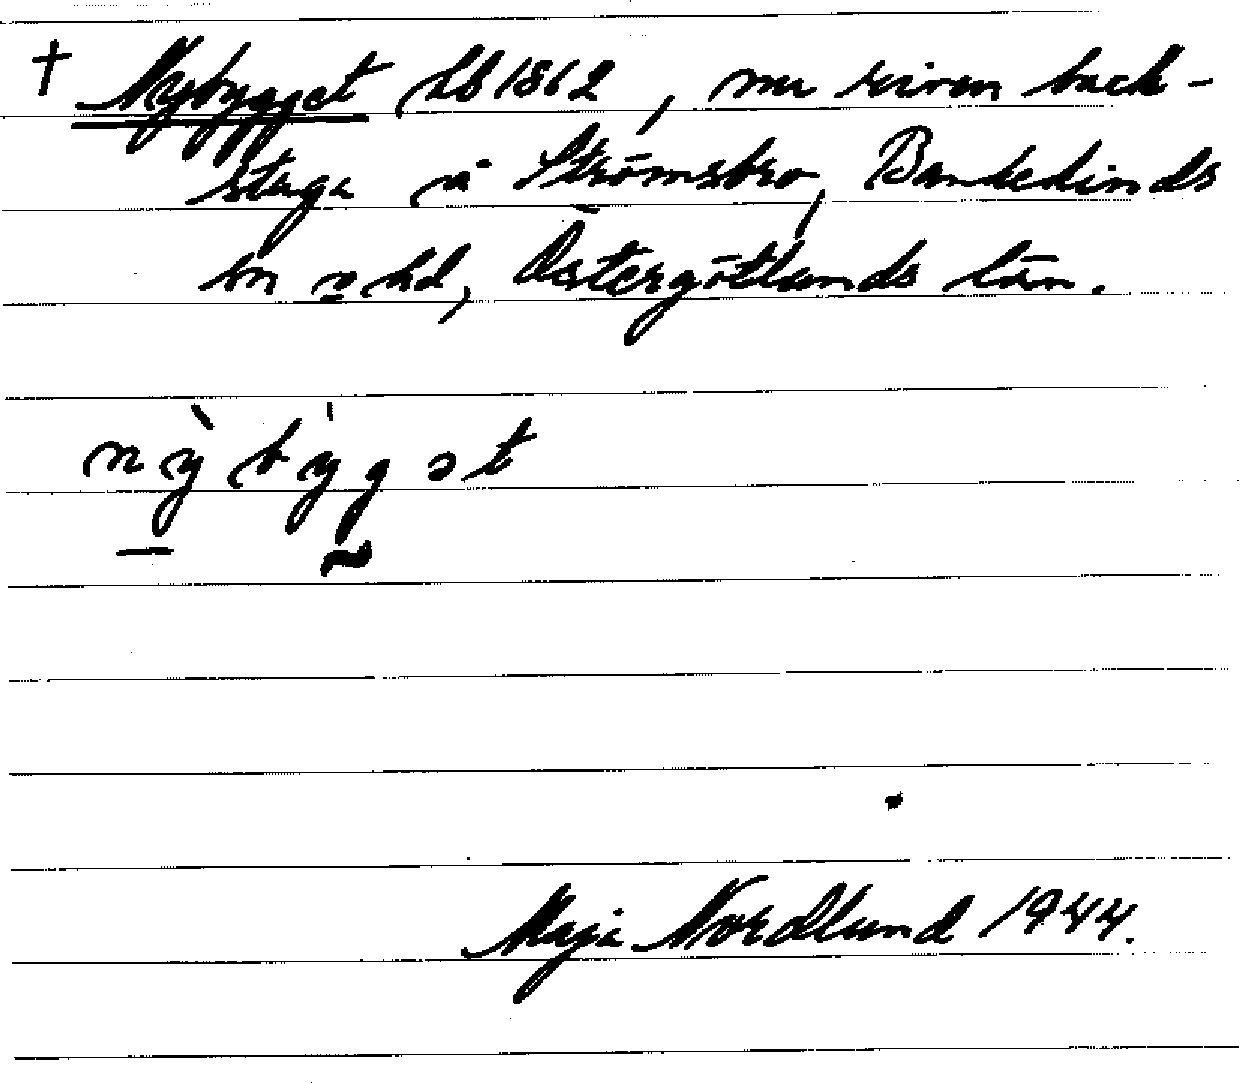 † Nybygget hb 1862, nu riven back-
stuga å Strömsbro, Bankekinds
sn o hd, Östergötlands län.
nỳbýgət
Maja Nordlund 1944.